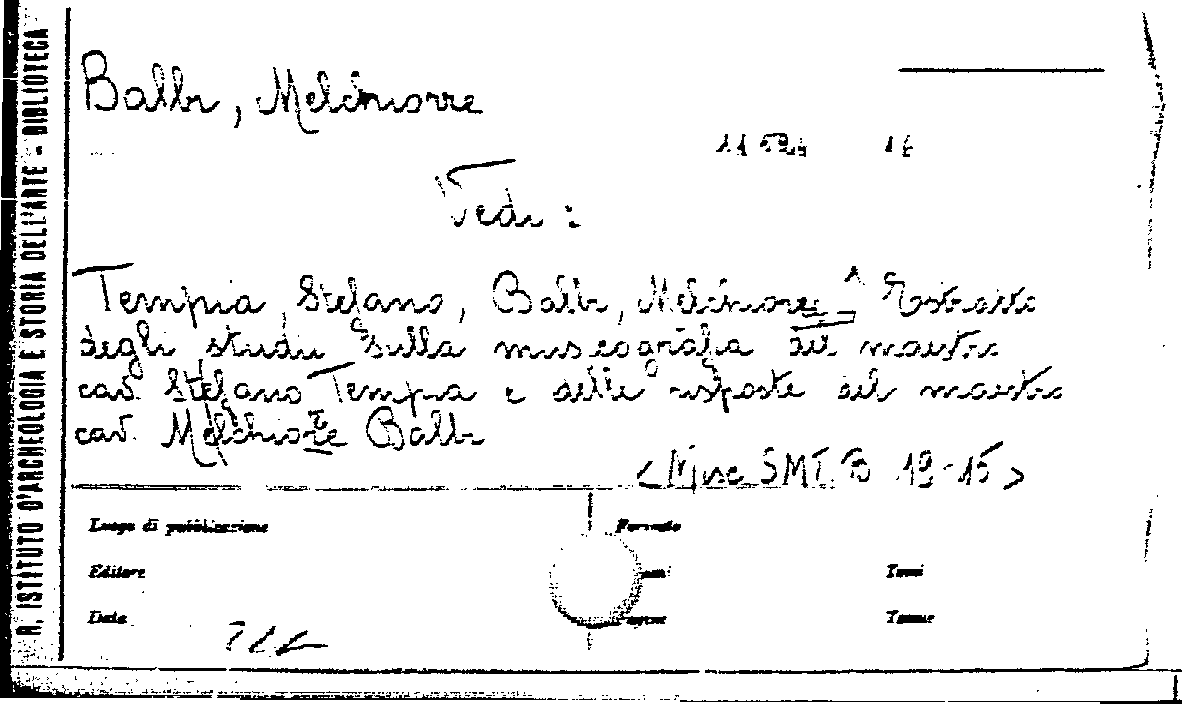 R. ISTITUTO D'ARCHEOLOGIA E STORIA DELL'ARTE - BIBLIOTECA
Balbi, Melchiorre
Vedi :
Tempia, Stefano, Balbi, Melchiorre Estratto
degli studii sulla museografia del maestro
cav. Stefano Tempia e delle risposte del maestro
cav. Melchiorre Balbi
<Misc SMT. B 19-15>
Luogo di pubblicazione
Formato
Editore
Tomi
Data
Tavole